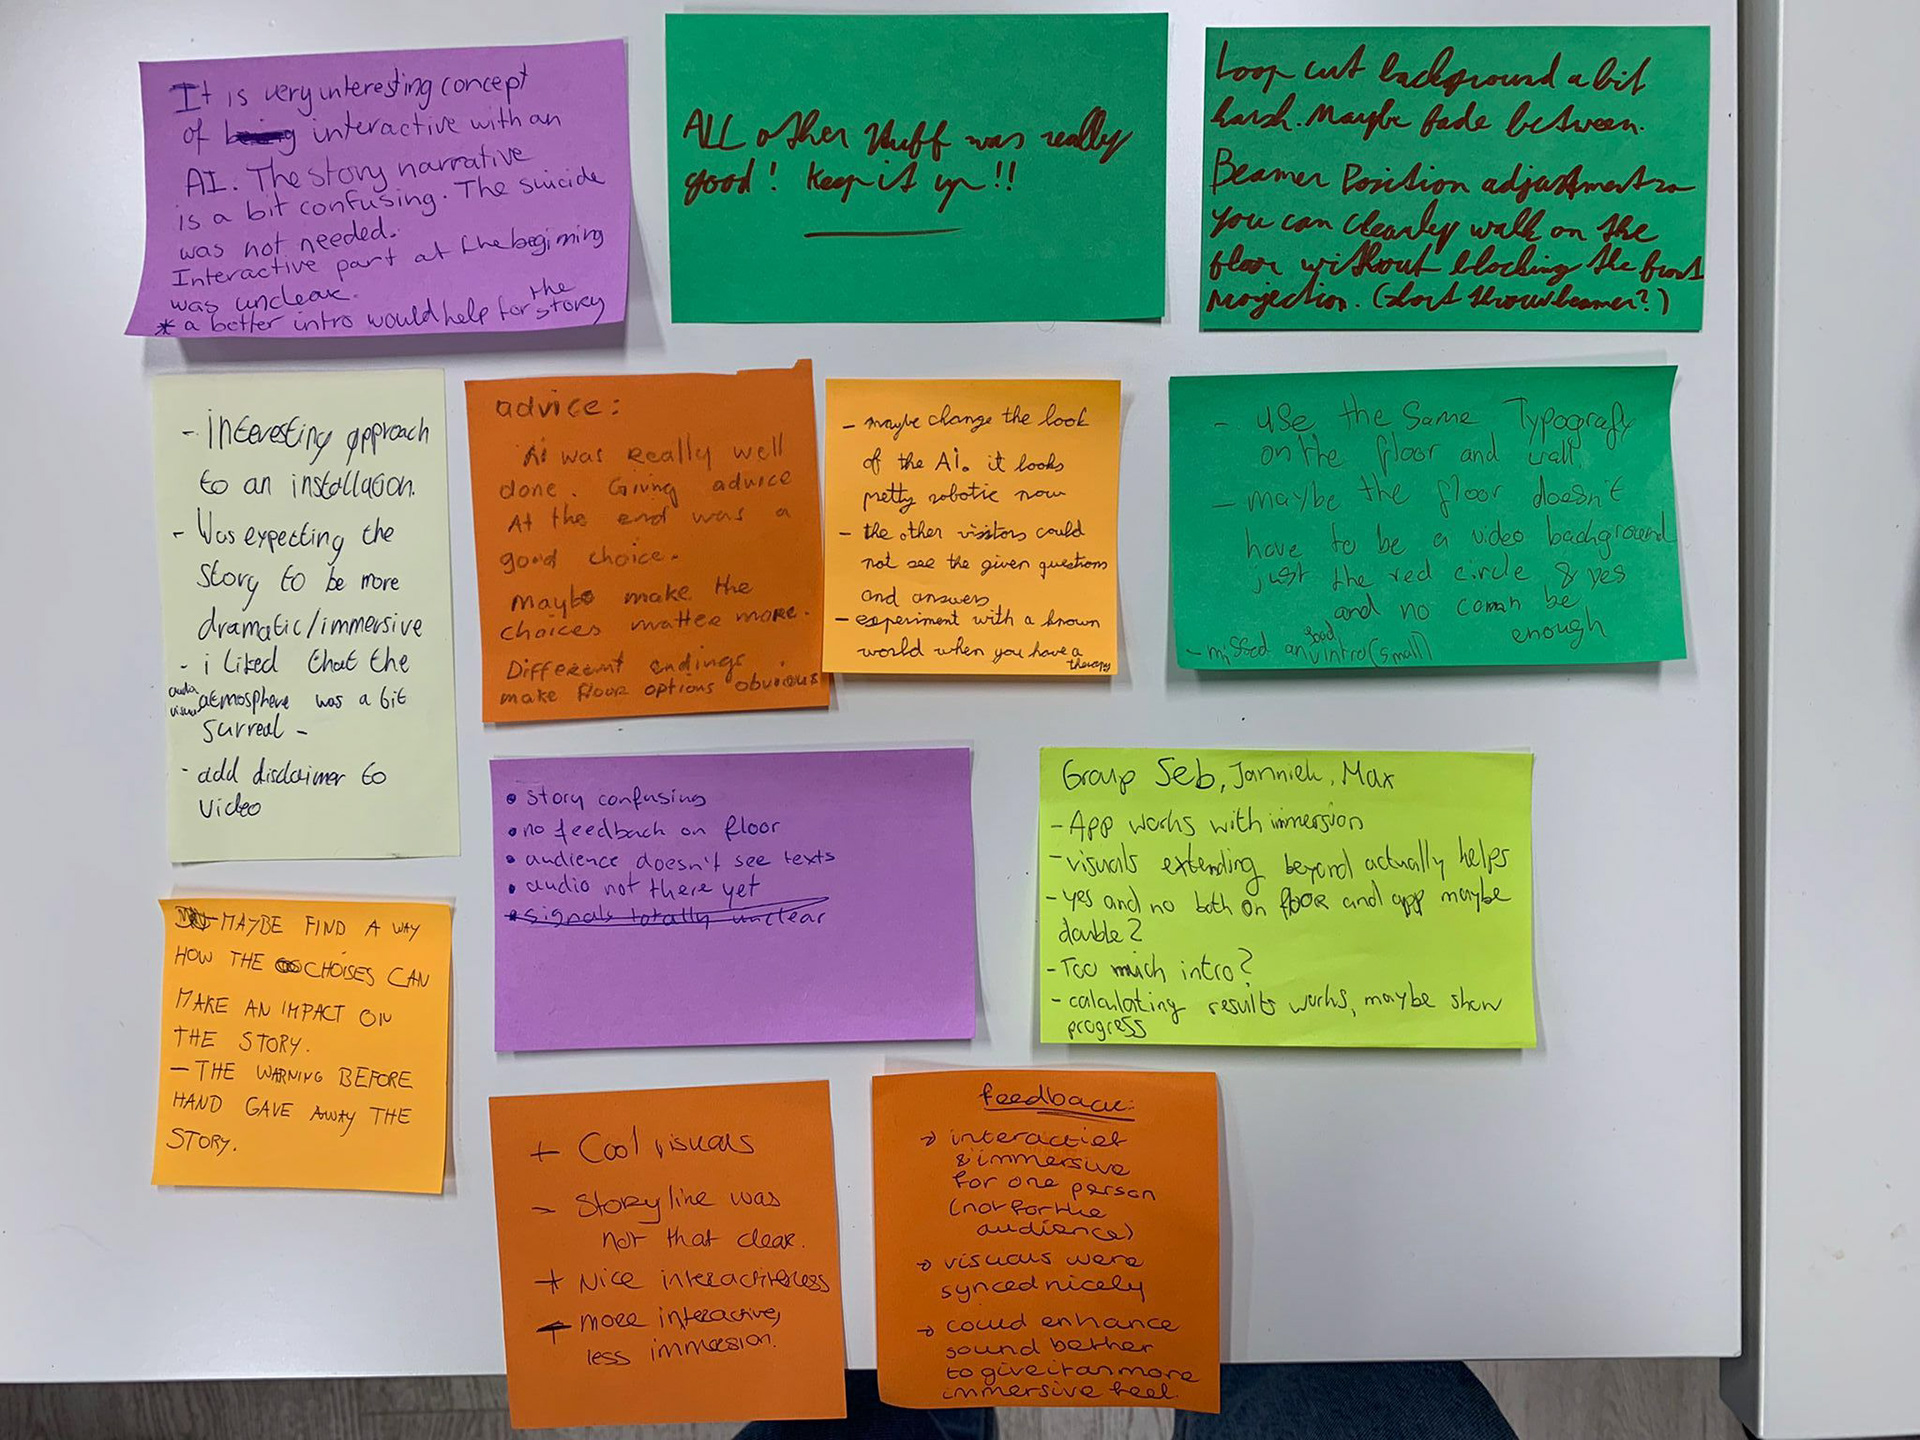 It is very interesting concept
of being interactive with an
AI. The story narrative
is a bit confusing. The suicide
was not needed.
Interactive part at the begining
was unclear.
* a better intro would help for the story
ALL other stuff was really
good! Keep it up!!
Loop cut background a bit
harsh. Maybe fade between.
Beamer Position adjustment so
you can clearly walk on the
floor without blocking the front
projection. (short throw beamer?)
- interesting approach
to an installation.
- Was expecting the
story to be more
dramatic/immersive
- i liked that the
audio visual atmosphere was a bit
surreal -
- add disclaimer to
video
advice:
Ai was really well
done. Giving advice
At the end was a
good choice.
Maybe make the
choices matter more.
Different endings
make floor options obvious
- maybe change the look
of the AI. it looks
pretty robotic now
- the other visitors could
not see the given questions
and answers
- experiment with a known
world when you have a
therapy
- use the same Typografy
on the floor and wall
- maybe the floor doesn't
have to be a video background
just the red circle & yes
and no can be
enough
- missed an good intro (small)
• story confusing
• no feedback on floor
• audience doesn't see texts
• audio not there yet
• signals totally unclear
Group Seb, Janniek, Max
- App works with immersion
- visuals extending beyond actually helps
- yes and no both on floor and app maybe
double?
- Too much intro?
- calculating results works, maybe show
progress
- MAYBE FIND A WAY
HOW THE CHOISES CAN
MAKE AN IMPACT ON
THE STORY.
- THE WARNING BEFORE
HAND GAVE AWAY THE
STORY.
+ Cool visuals
- Storyline was
not that clear.
+ Nice interactiveness
+ more interactive,
less immersion.
feedback:
→ interactief
& immersive
for one person
(not for the
audience)
→ visuals were
synced nicely
→ could enhance
sound bether
to give it an more
immersive feel